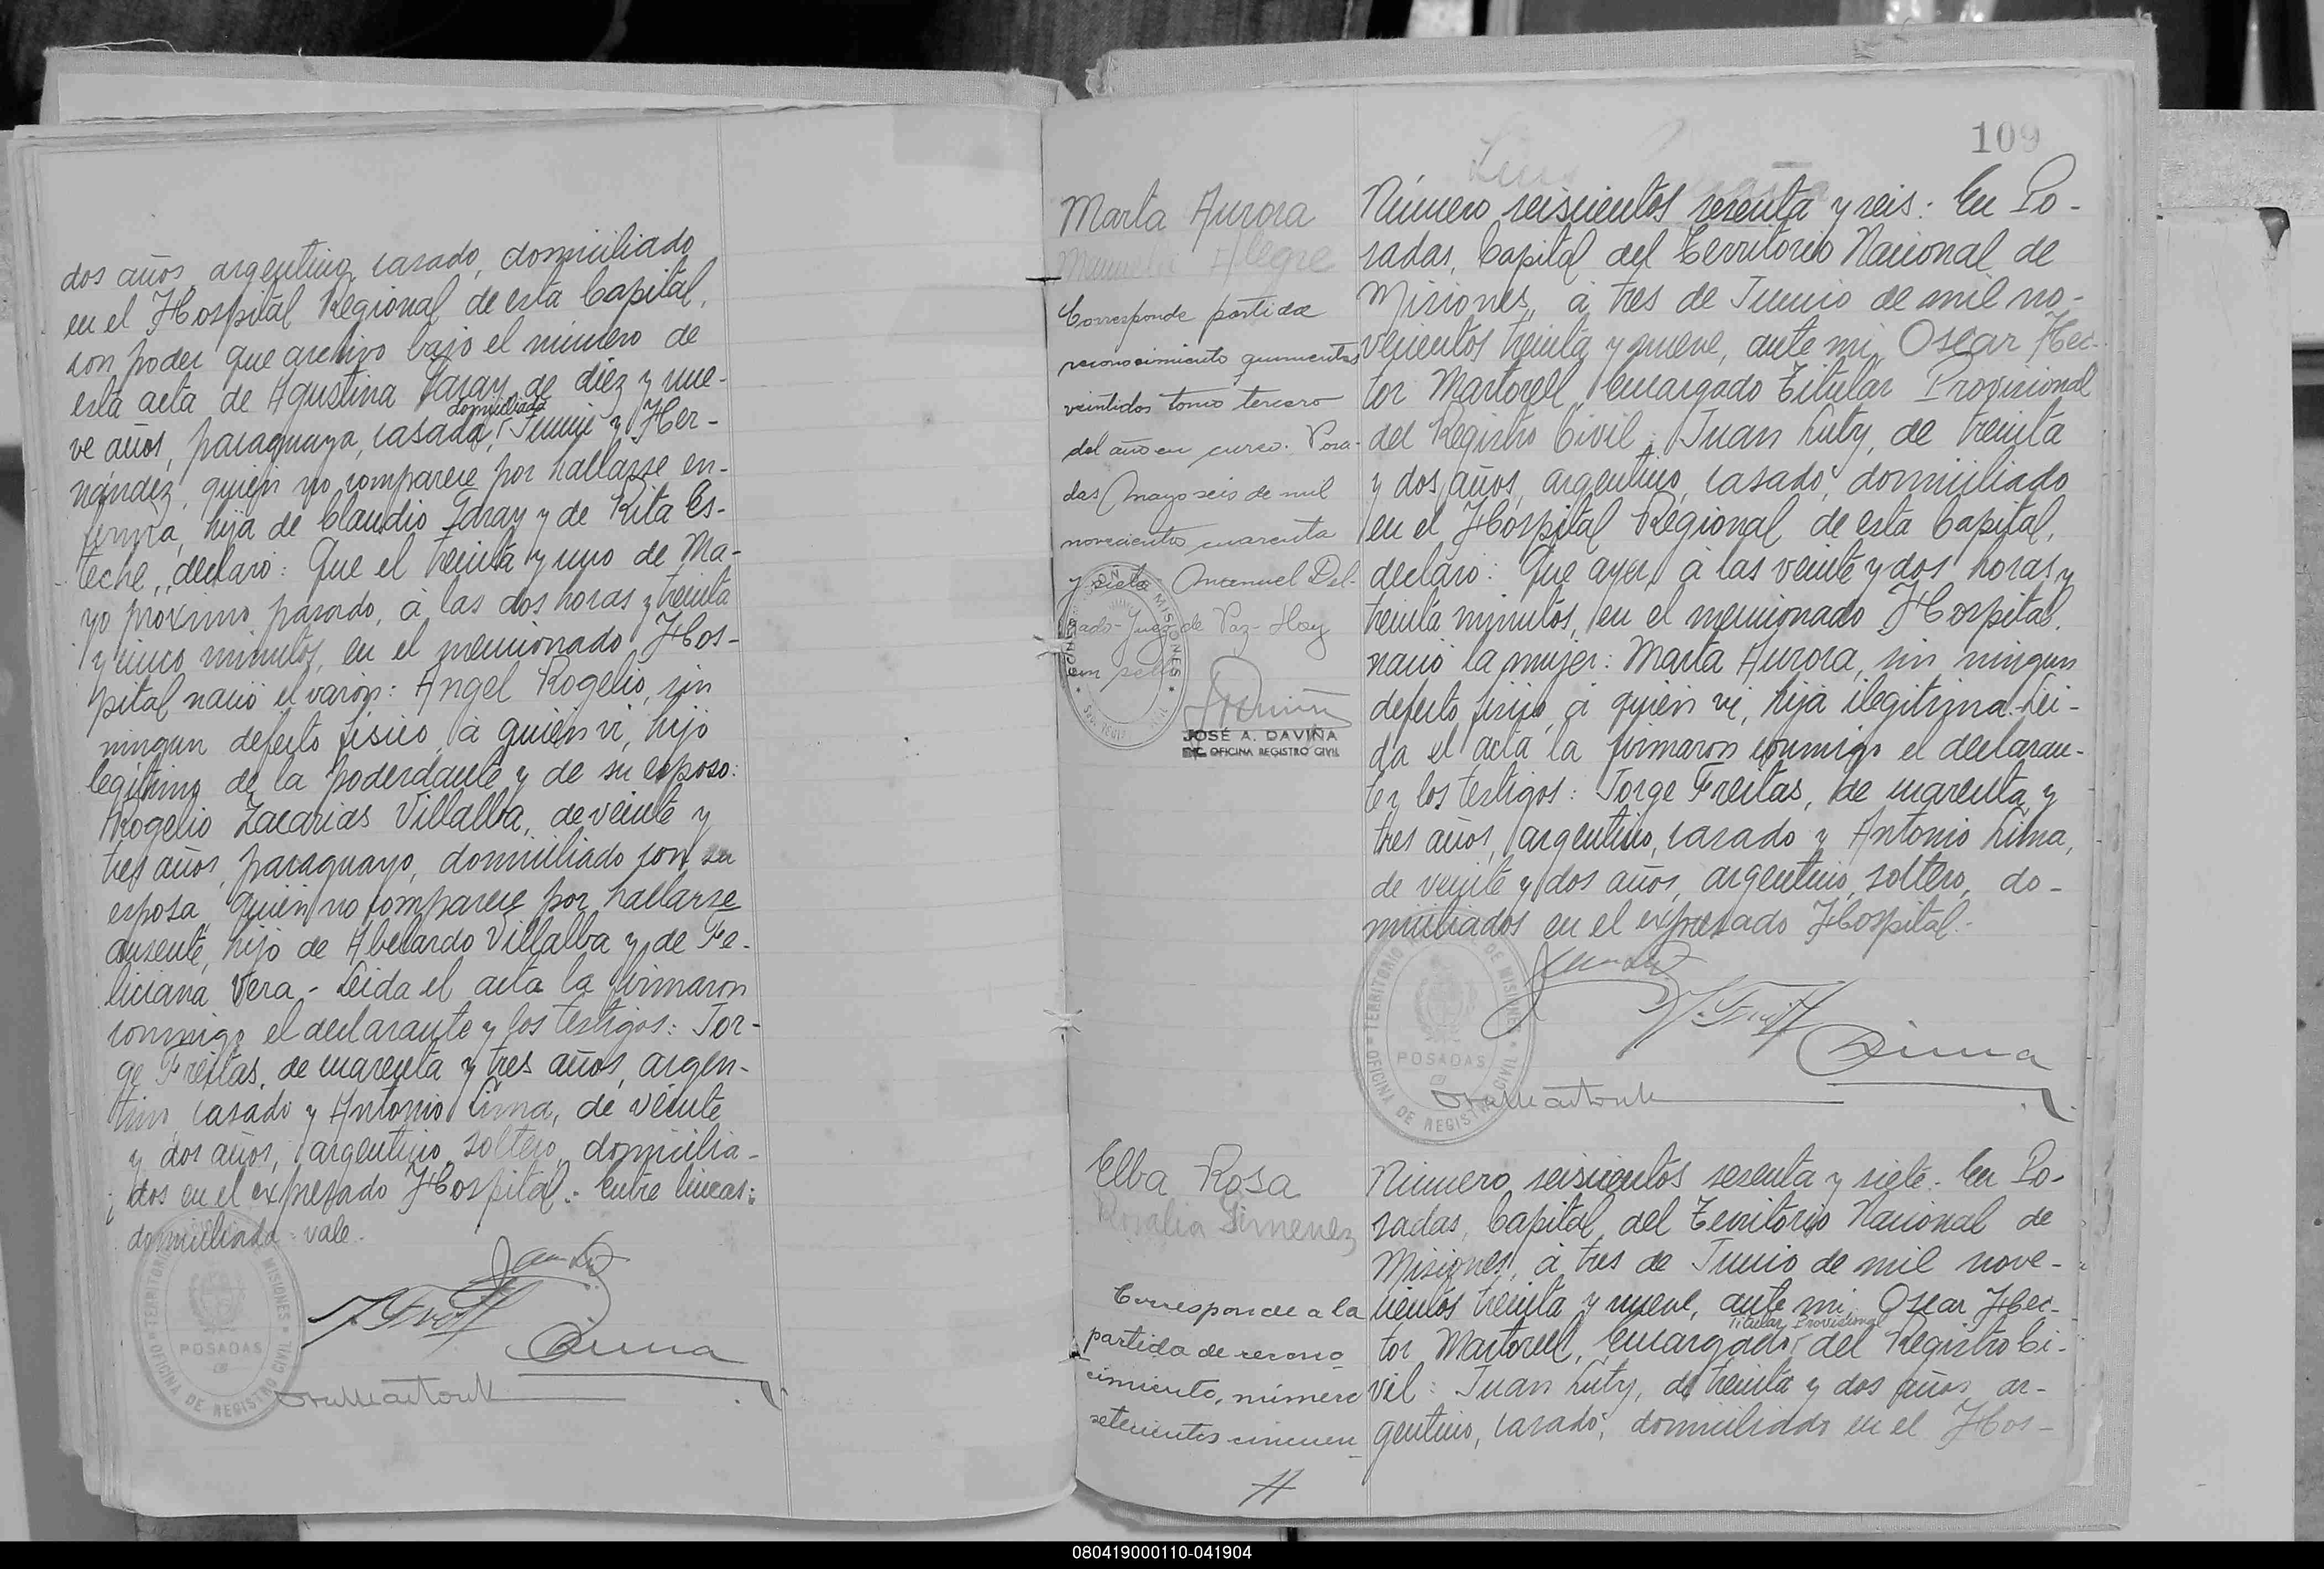 dos años, argentino, casado, domiciliado
en el Hospital Regional de esta Capital,
con poder que archivo bajo el número de
esta acta de Agustina Garay, de diez y nue-
domiciliada
ve años, paraguaya, casada, Junin y Her-
nández, quien no comparece por hallarse en-
ferma, hija de Claudio Garay y de Rita Es-
teche, declaró: Que el treinta y uno de Ma-
yo próximo pasado, á las dos horas y treinta
y cinco minutos, en el mencionado Hos-
pital nació el varón: Angel Rogelio, sin
ningun defecto físico, á quién vi, hijo
legítimo de la poderdante y de su esposo:
Rogelio Zacarias Villalba, de veinte y
tres años, paraguayo, domiciliado con su
esposa, quien no comparece por hallarse
ausente, hijo de Abelardo Villalba y de Fe-
liciana Vera - Leida el acta la firmaron
conmigo el declarante y los testigos: Jor-
ge Freitas, de cuarenta y tres años, argen-
tino, casado y Antonio Lima, de veinte
y dos años, argentino, soltero, domicilia-
dos en el expresado Hospital.- Entre lineas:
domiciliada - vale.
J. Freitas
Lima
TERRITORIO MISIONES
POSADAS
OFICINA DE REGISTRO CIVIL
109
Marta Aurora
Alegre
Corresponde partida
reconocimiento quinientos
veintidos tomo tercero
del año en curso. Posa-
das, Mayo seis de mil
novecientos cuarenta
y siete Manuel Del-
gado - Juez de Paz - Hay
un sello
MISIONES
JOSÉ A. DAVIÑA
ENC. OFICINA REGISTRO CIVIL
Número seiscientos sesenta y seis: En Po-
sadas, Capital del Territorio Nacional de
Misiones, á tres de Junio de mil no-
vecientos treinta y nueve, ante mi, Oscar Hec-
tor Martorell, Encargado Titular Provisional
del Registro Civil; Juan Luty, de treinta
y dos años, argentino, casado, domiciliado
en el Hospital Regional de esta Capital,
declaró: Que ayer, á las veinte y dos horas y
treinta minutos, en el mencionado Hospital,
nació la mujer: Marta Aurora, sin ningun
defecto físico, á quién vi, hija ilegitima. Lei-
da el acta la firmaron conmigo el declaran-
te y los testigos: Jorge Freitas, de cuarenta y
tres años, argentino, casado y Antonio Lima,
de veinte y dos años, argentino, soltero, do-
miciliados en el expresado Hospital.-
J. Freitas
Lima
TERRITORIO DE MISIONES
POSADAS
OFICINA DE REGISTRO CIVIL
Elba Rosa
Rosalia Jimenez
Corresponde a la
partida de recono-
cimiento, número
setecientos cincuen-
Número seiscientos sesenta y siete: En Po-
sadas, Capital del Territorio Nacional de
Misiones, á tres de Junio de mil nove-
cientos treinta y nueve, ante mi, Oscar Hec-
Titular Provisional
tor Martorell, Encargado del Registro Ci-
vil: Juan Luty, de treinta y dos años, ar-
gentino, casado, domiciliado en el Hos-
080419000110-041904